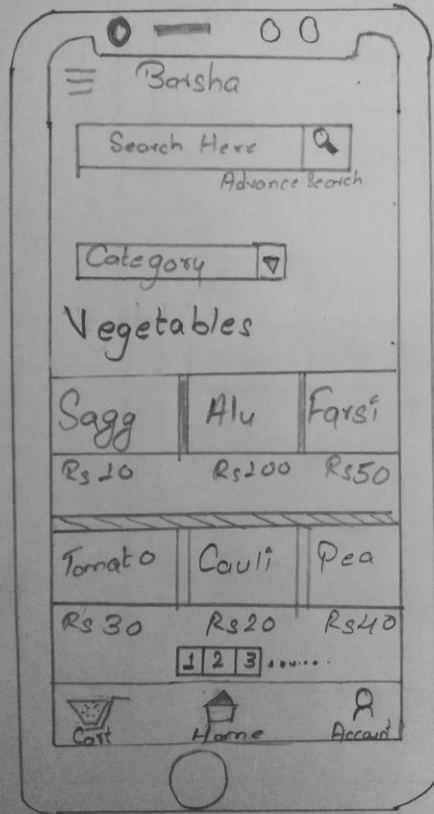 Barsha
Search Here
Advance Search
Category
Vegetables
Sagg Alu Farsi
Rs 10 Rs100 Rs50
Tomato Cauli Pea
Rs 30 Rs20 Rs40
1 2 3 .......
Cart Home Account